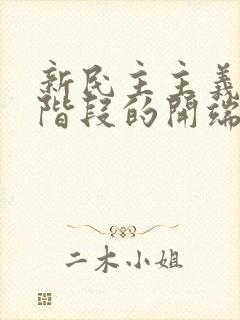 新民主主義
階段的開端
二木小姐